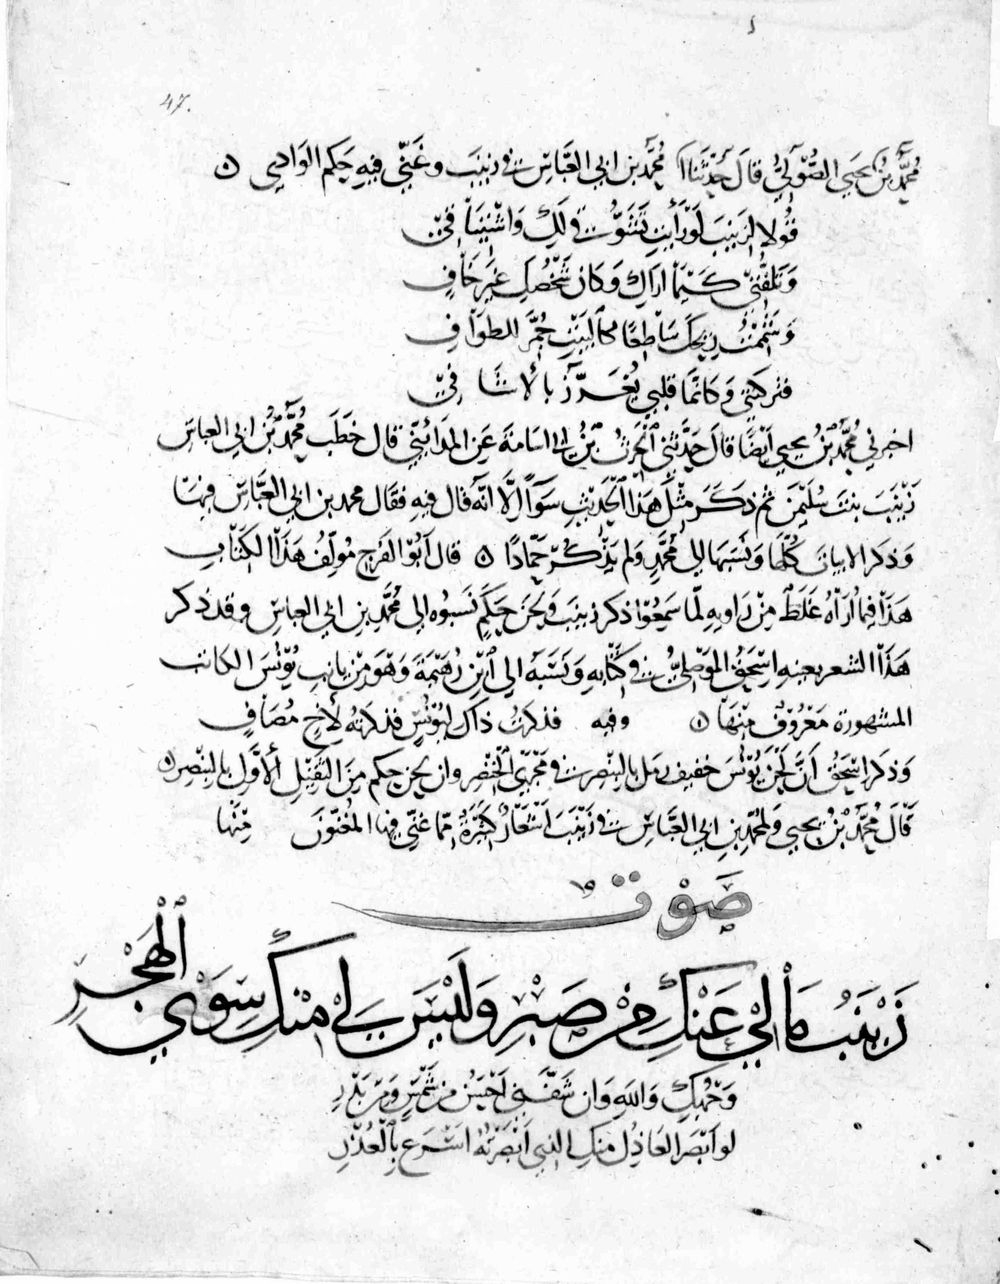 47.
محمد بن يحيى الصولي قال حدثنا محمد بن ابي العباس في زينب وغنى فيه حكم الوادي ه
قولا لزينب لو رأيت تشوفي لك واشتيافي
وتلفتي كيما اراك وكان شخصك غير خاف
وشممت ريحك ساطعا كالبيت جمر للطواف
فتركتني وكانما قلبي يغرز بالاشافي
اخبرني محمد بن يحيى ايضا قال حدثني الحرث بن ابي اسامة عن المدائني قال خطب محمد بن ابي العباس
زينب بنت سليمن ثم ذكر مثل هذا الحديث سواء الا انه قال فيه فقال محمد بن ابي العباس فيها
وذكر الابيات كلها ونسبها الى محمد ولم يذكر حمادا ه قال ابو الفرج مولف هذا الكتاب
هذا فيما اراه غلط من راويه لما سمعوا ذكر زينب ولحن حكم نسبوه الى محمد بن ابي العباس وقد ذكر
هذا الشعر بعينه اسحق الموصلي في كتابه ونسبه الى ابن رهيمة وهو من زيانب يونس الكاتب
المشهورة معروف منها ه وفيه فذكرت ذاك ليونس فذكرته لاخ مصاف
وذكر اسحق ان لحن يونس خفيف رمل بالبنصر في مجرى الخنصر وان لحن حكم من الثقيل الاول بالبنصر ه
قال محمد بن يحيى ولمحمد بن ابي العباس في زينب اشعار كثيرة مما غنى فيها المغنون منها
صوت
زينب ما لي عنك من صبر وليس لي منك سوى الهجر
وجهك والله وان شفني احسن من شمس ومن بدر
لو ابصر العاذل منك الذي ابصرته اسرع بالعذر